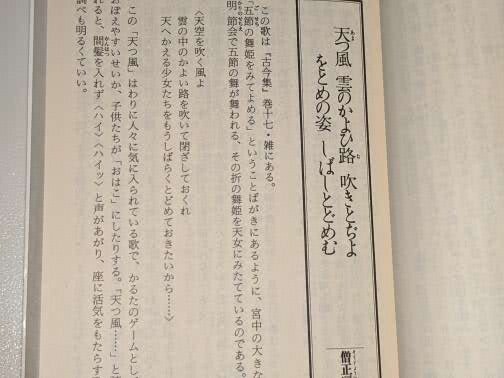 天つ風 雲のかよひ路 吹きとぢよ
をとめの姿 しばしとどめむ
僧正
この歌は『古今集』巻十七・雑にある。
「五節の舞姫をみてよめる」ということばがきにあるように、宮中の大きな
明節会で五節の舞が舞われる、その折の舞姫を天女にみたてているのである。
〈天空を吹く風よ
雲の中のかよい路を吹いて閉ざしておくれ
天へかえる少女たちをもうしばらくとどめておきたいから……〉
この「天つ風」はわりに人々に気に入られている歌で、かるたのゲームとし
おぼえやすいせいか、子供たちが「おはこ」にしたりする。「天つ風……」と
れると、間髪を入れず〈ハイ〉〈ハイッ〉と声があがり、座に活気をもたらす
調べも明るくていい。